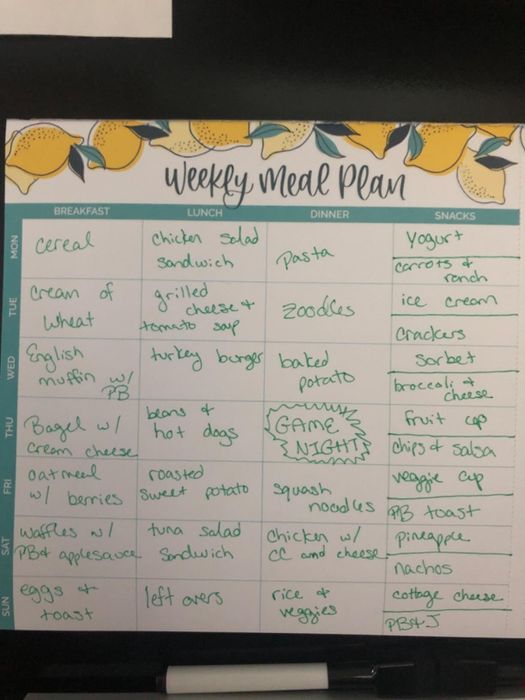 Weekly Meal Plan
BREAKFAST LUNCH DINNER SNACKS
MON
cereal
chicken salad
sandwich
pasta
Yogurt
carrots &
ranch
TUE
Cream of
Wheat
grilled
cheese &
tomato soup
zoodles
ice cream
crackers
WED
English
muffin w/
PB
turkey burger
baked
potato
Sorbet
broccoli &
cheese
THU
Bagel w/
cream cheese
beans &
hot dogs
GAME
NIGHT
fruit cup
chips & salsa
FRI
oatmeal
w/ berries
roasted
sweet potato
squash
noodles
veggie cup
PB toast
SAT
waffles w/
PB & applesauce
tuna salad
Sandwich
chicken w/
CC and cheese
pineapple
nachos
SUN
eggs &
toast
left overs
rice &
veggies
cottage cheese
PB & J